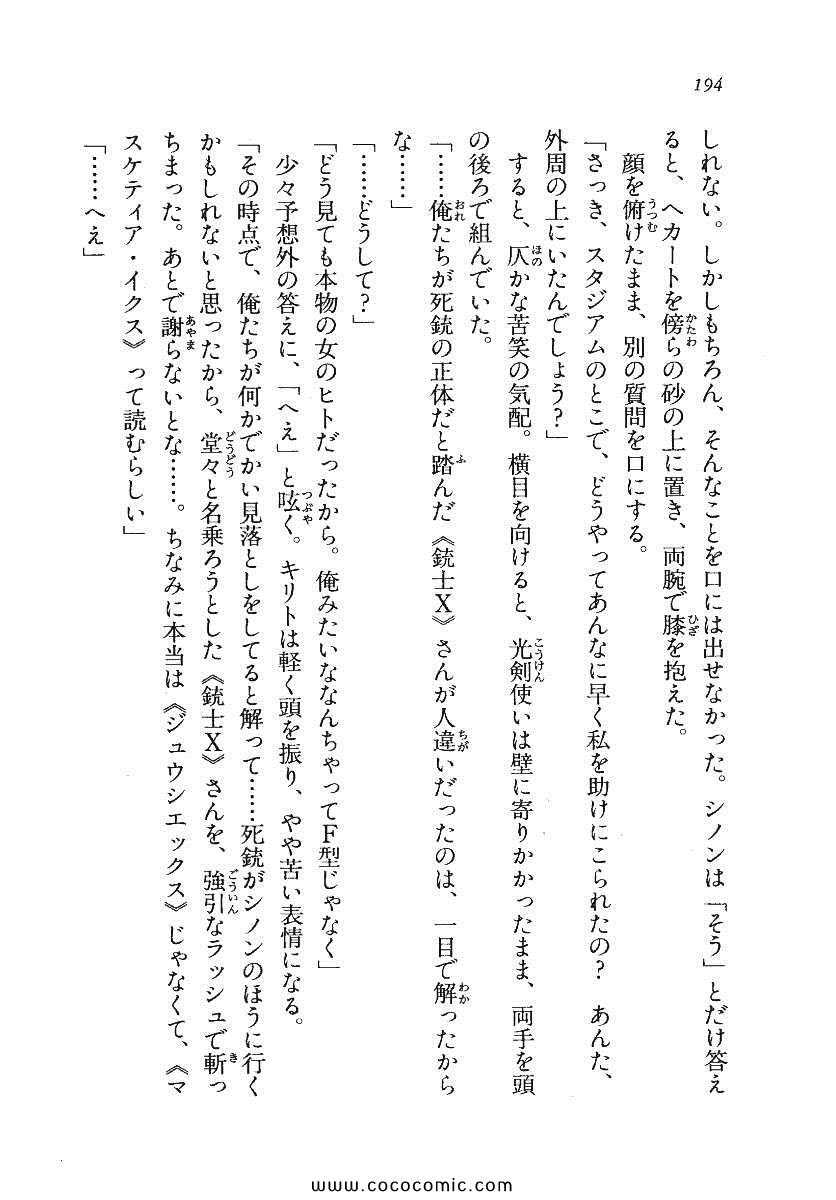 194
しれない。しかしもちろん、そんなことを口には出せなかった。シノンは「そう」とだけ答え
ると、ヘカートを傍らの砂の上に置き、両腕で膝を抱えた。
顔を俯けたまま、別の質問を口にする。
「さっき、スタジアムのとこで、どうやってあんなに早く私を助けにこられたの？　あんた、
外周の上にいたんでしょう？」
すると、仄かな苦笑の気配。横目を向けると、光剣使いは壁に寄りかかったまま、両手を頭
の後ろで組んでいた。
「……俺たちが死銃の正体だと踏んだ《銃士Ｘ》さんが人違いだったのは、一目で解ったから
な……」
「……どうして？」
「どう見ても本物の女のヒトだったから。俺みたいななんちゃってＦ型じゃなく」
少々予想外の答えに、「へえ」と呟く。キリトは軽く頭を振り、やや苦い表情になる。
「その時点で、俺たちが何かでかい見落としをしてると解って……死銃がシノンのほうに行く
かもしれないと思ったから、堂々と名乗ろうとした《銃士Ｘ》さんを、強引なラッシュで斬っ
ちまった。あとで謝らないとな……。ちなみに本当は《ジュウシエックス》じゃなくて、《マ
スケティア・イクス》って読むらしい」
「……へえ」
www.cococomic.com